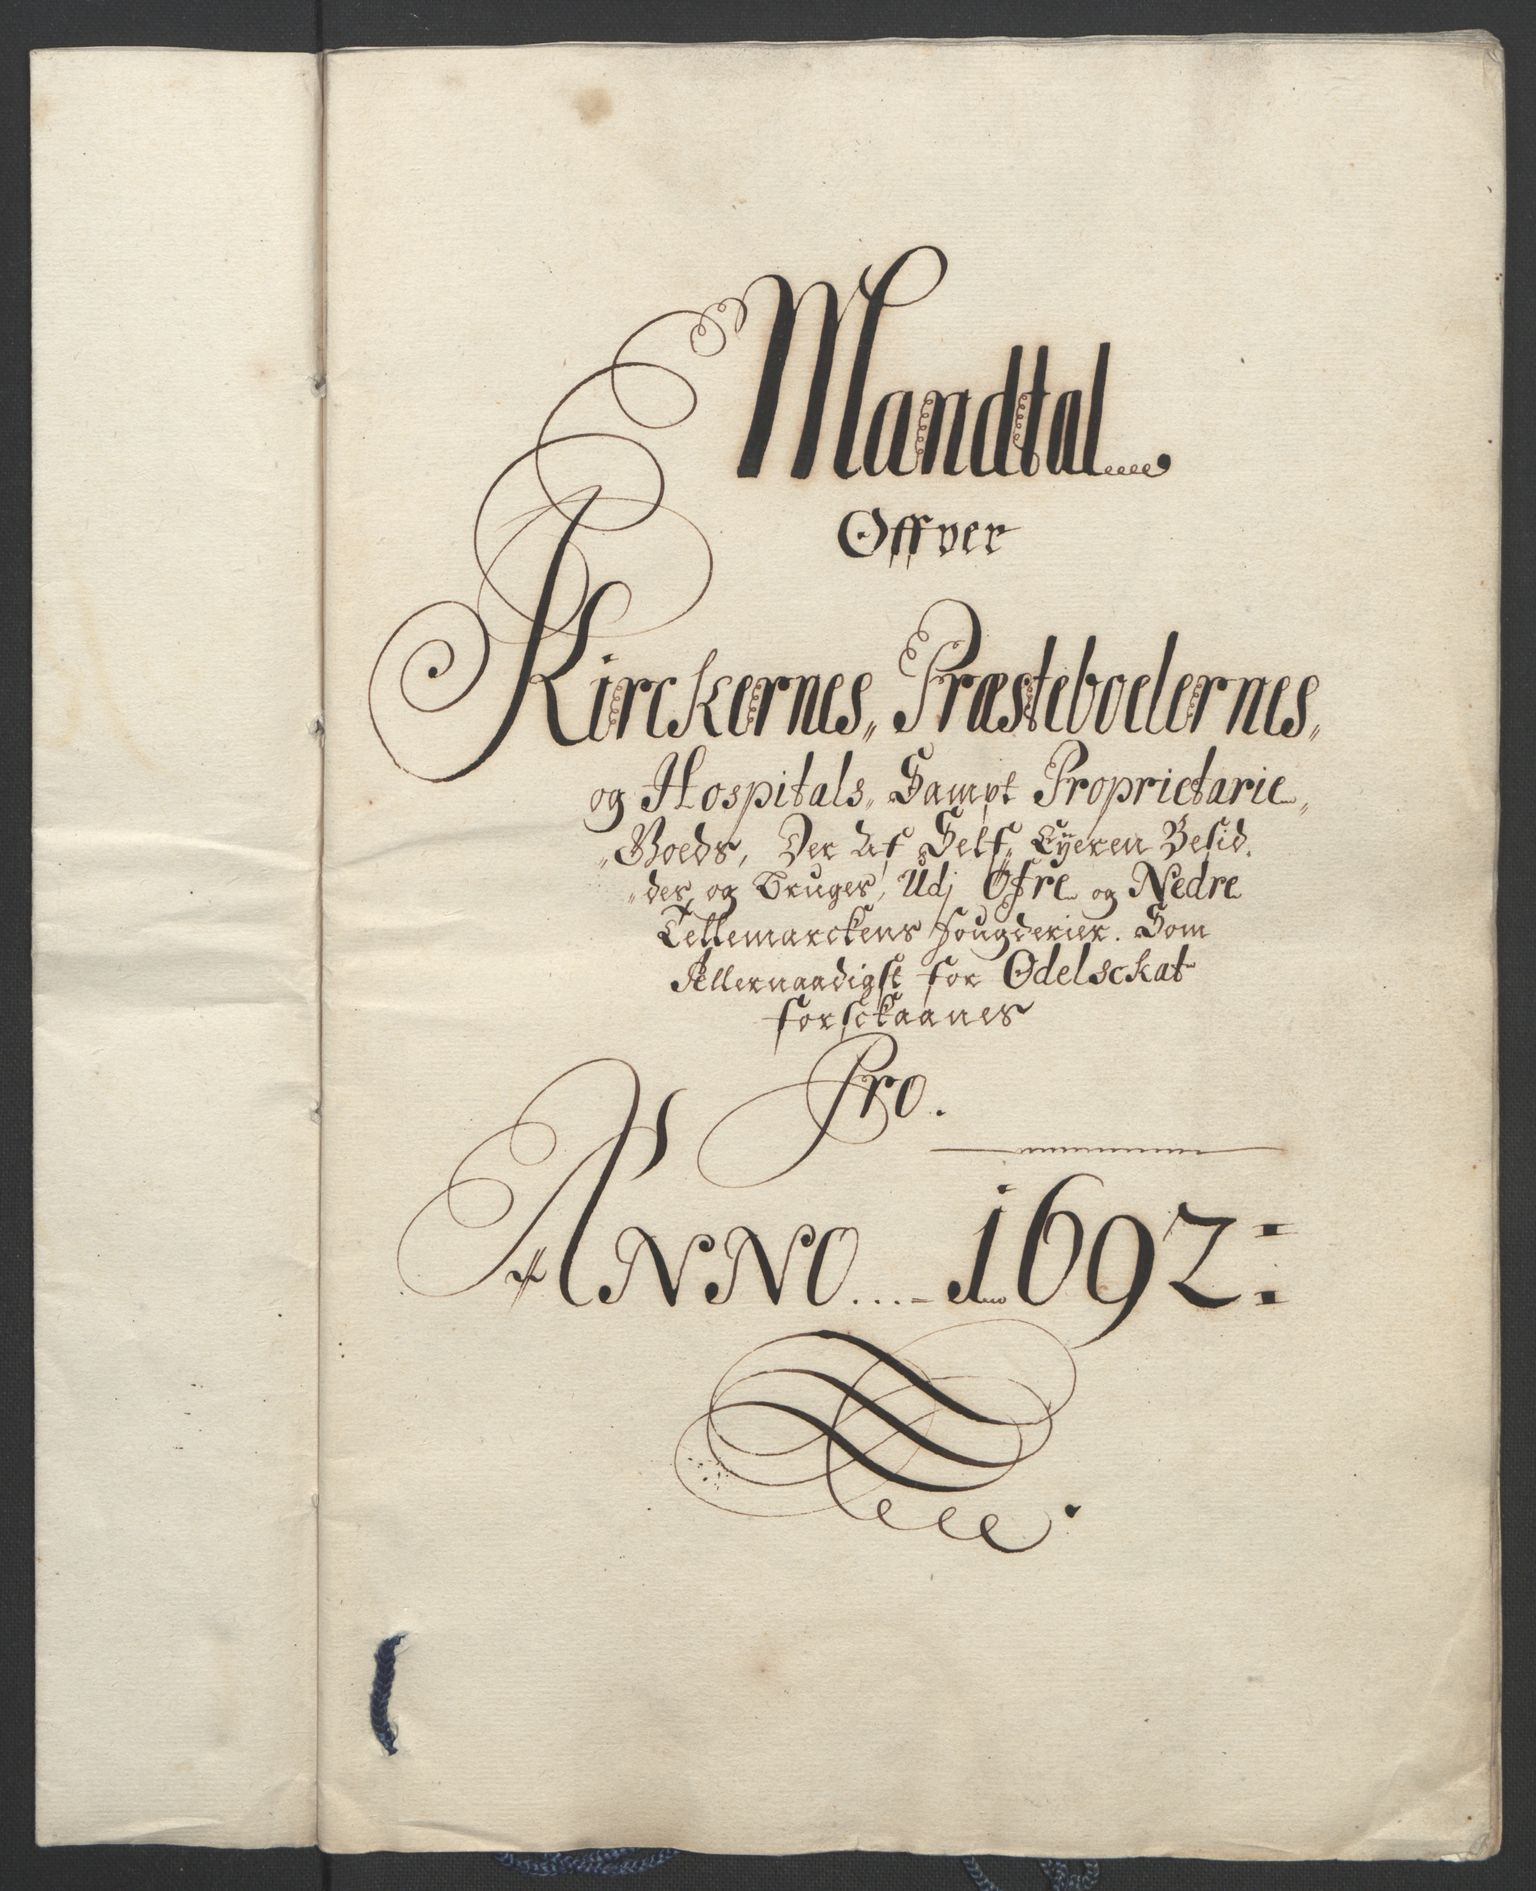 Mandtal
Offver
Kirckernes, Præsteboelernes,
og Hospitals, Sampt Proprietarie,
Goeds, Der Af Self, Eyeren Besid,
des, og Bruges, Udj Øfre og Nedre
Tellemarckens fougderier. Som
Allernaadigst for Odelsckat
forsckaanes
Pro.
ANNO 1692: